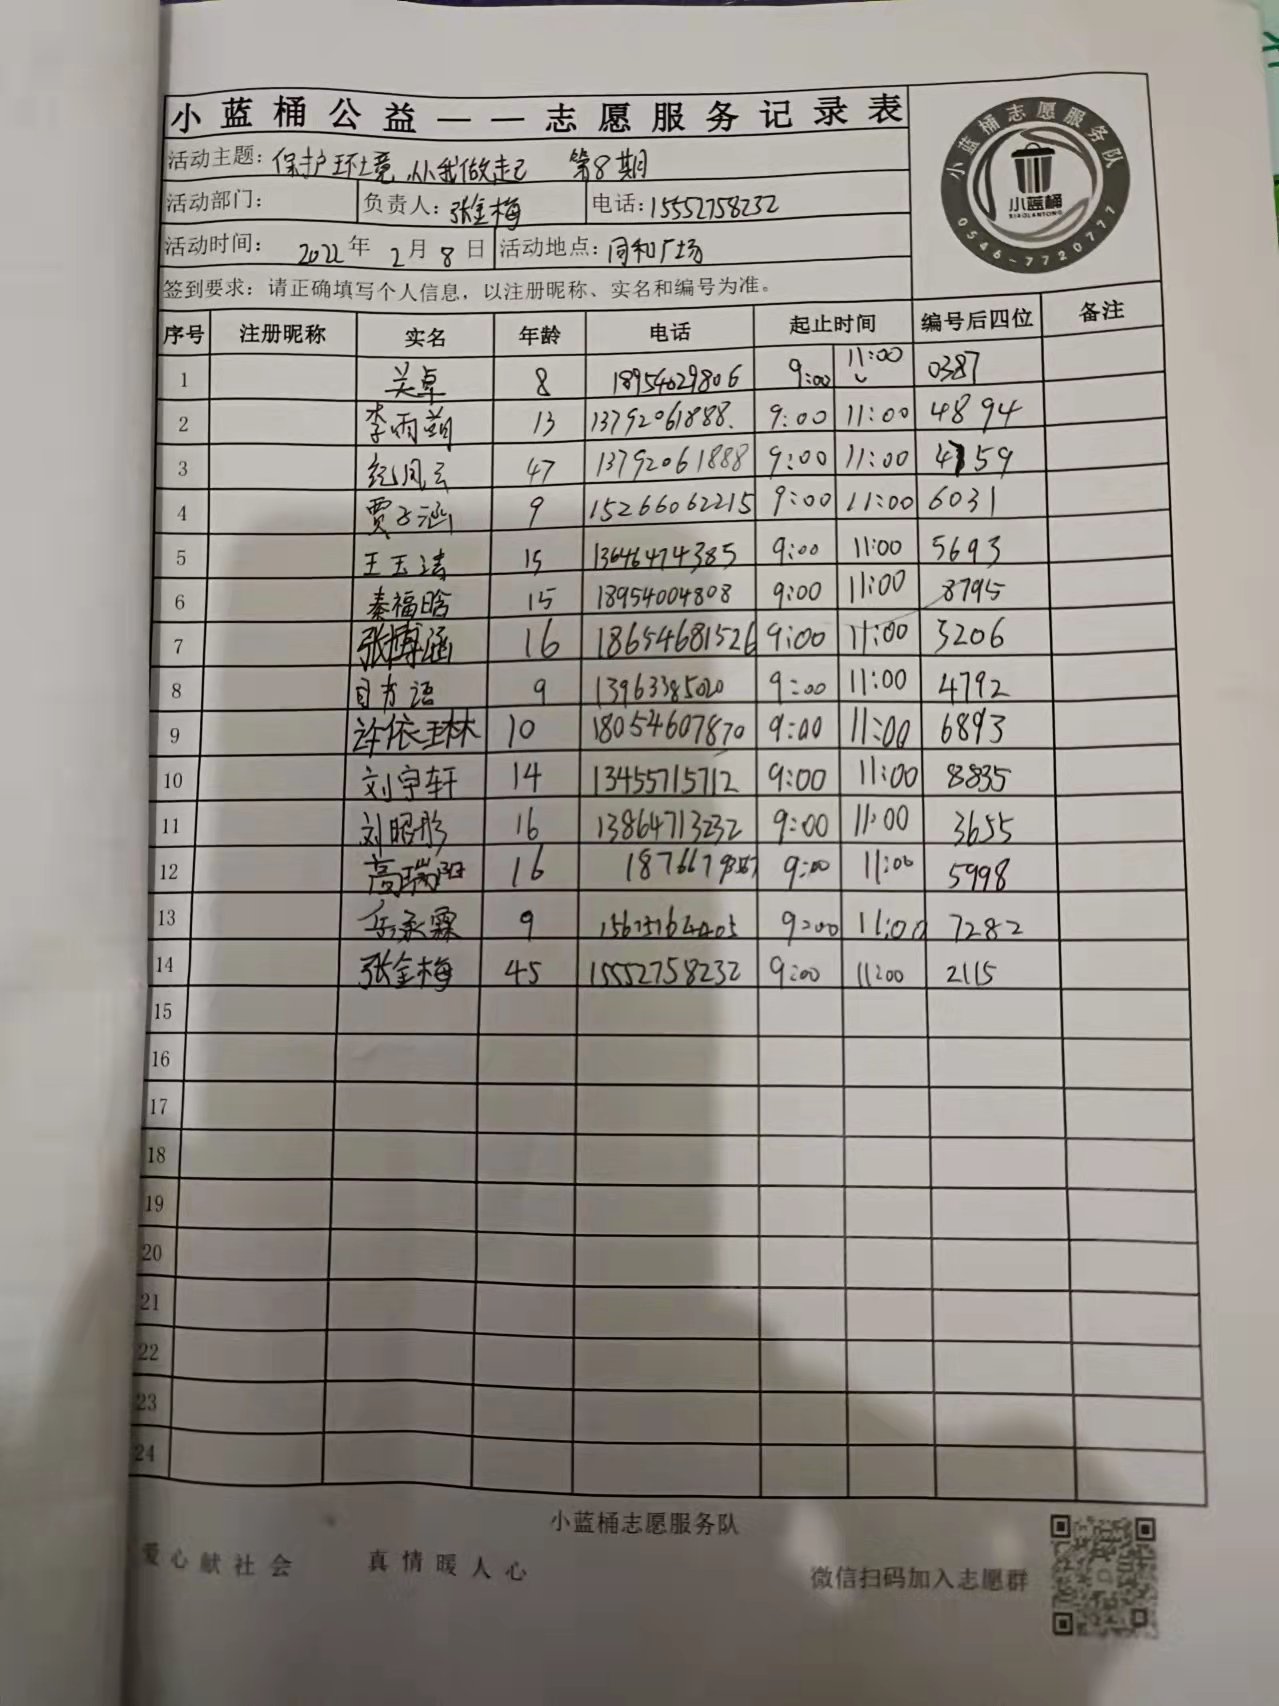 小蓝桶公益——志愿服务记录表
小蓝桶志愿服务队
小蓝桶
XIAOLANTONG
0546-7720777
活动主题：保护环境,从我做起 第8期
活动部门： 负责人：张金梅 电话：15552758232
活动时间： 2022年 2月 8日 活动地点：同和广场
签到要求：请正确填写个人信息，以注册昵称、实名和编号为准。
序号 注册昵称 实名 年龄 电话 起止时间 编号后四位 备注
1 关卓 8 18954029806 9:00 11:00 0387
2 李雨萌 13 13792061888. 9:00 11:00 4894
3 纪凤云 47 13792061888 9:00 11:00 4159
4 贾子涵 9 15266062215 9:00 11:00 6031
5 王玉洁 15 13646474385 9:00 11:00 5693
6 秦福晗 15 18954004808 9:00 11:00 8795
7 张博涵 16 18654681526 9:00 11:00 3206
8 9 13963385020 9:00 11:00 4792
9 许依琳 10 18054607870 9:00 11:00 6893
10 刘宇轩 14 13455715712 9:00 11:00 8835
11 刘昭彤 16 13864713232 9:00 11:00 3655
12 高瑞阳 16 9:00 11:00 5998
13 岳承霖 9 9:00 11:00 7282
14 张金梅 45 15552758232 9:00 11:00 2115
15
16
17
18
19
20
21
22
23
24
小蓝桶志愿服务队
爱心献社会 真情暖人心 微信扫码加入志愿群